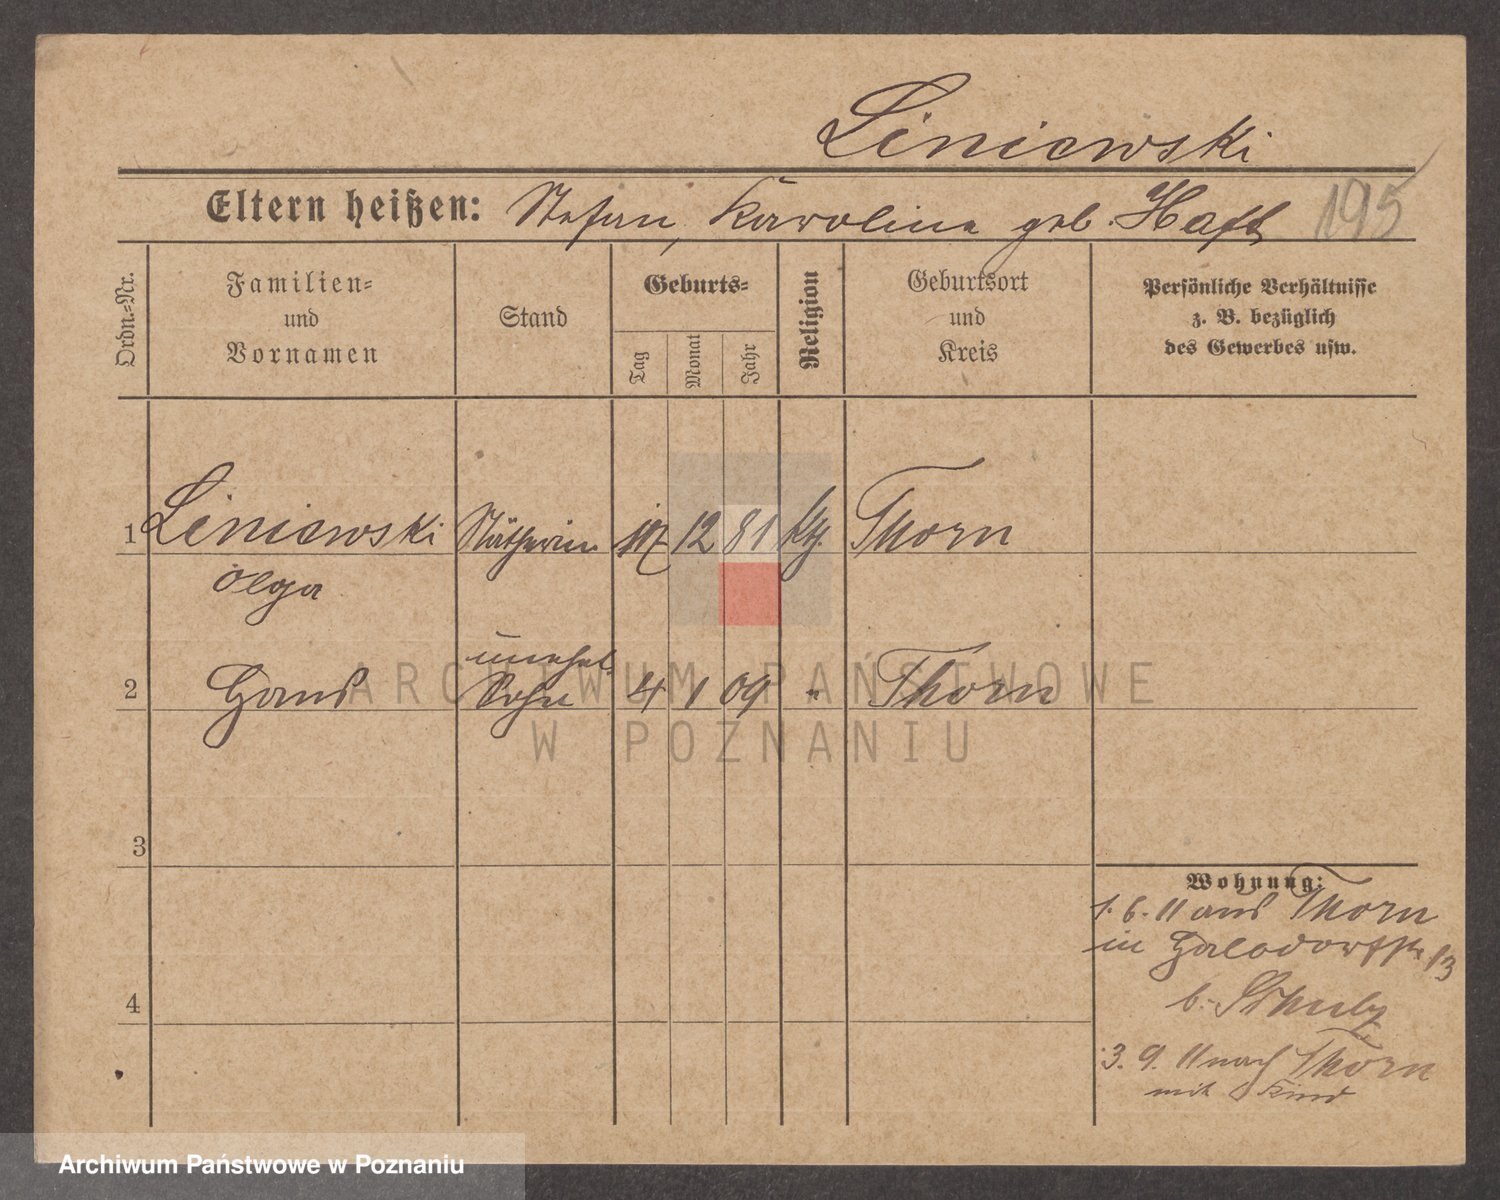 Liniewski
Eltern heißen: Stefan, Karoline geb. Haft 195
Ordn.-Nr.
Familien-
und
Vornamen
Stand
Geburts-
Tag
Monat
Jahr
Religion
Geburtsort
und
Kreis
Persönliche Verhältnisse
z. B. bezüglich
des Gewerbes usw.
1 Liniewski 12 81 kth. Thorn
Olga
unehel.
2 Hans Sohn 4 1 09 " Thorn
3
Wohnung:
1. 6. 11 aus Thorn
in 13
b.
4
3. 9. 11 nach Thorn
mit Kind
ARCHIWUM PAŃSTWOWE
W POZNANIU
Archiwum Państwowe w Poznaniu